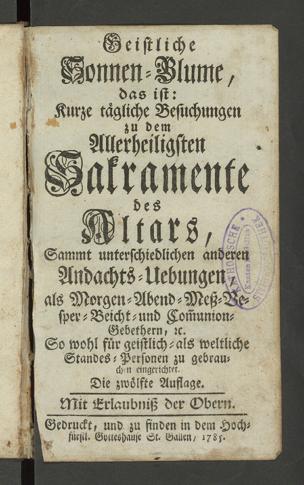 Geistliche
Sonnen-Blume,
das ist:
Kurze tägliche Besuchungen
zu dem
Allerheiligsten
Sakramente
des
Altars,
Sammt unterschiedlichen anderen
Andachts-Uebungen
als Morgen-Abend-Meß-Ve-
sper-Beicht-und Com̃union-
Gebethern, ꝛc.
So wohl für geistlich-als weltliche
Standes-Personen zu gebrau-
chen eingerichtet.
Die zwölfte Auflage.
Mit Erlaubniß der Obern.
Gedruckt, und zu finden in dem Hoch-
fürstl. Gotteshause St. Gallen, 1785.